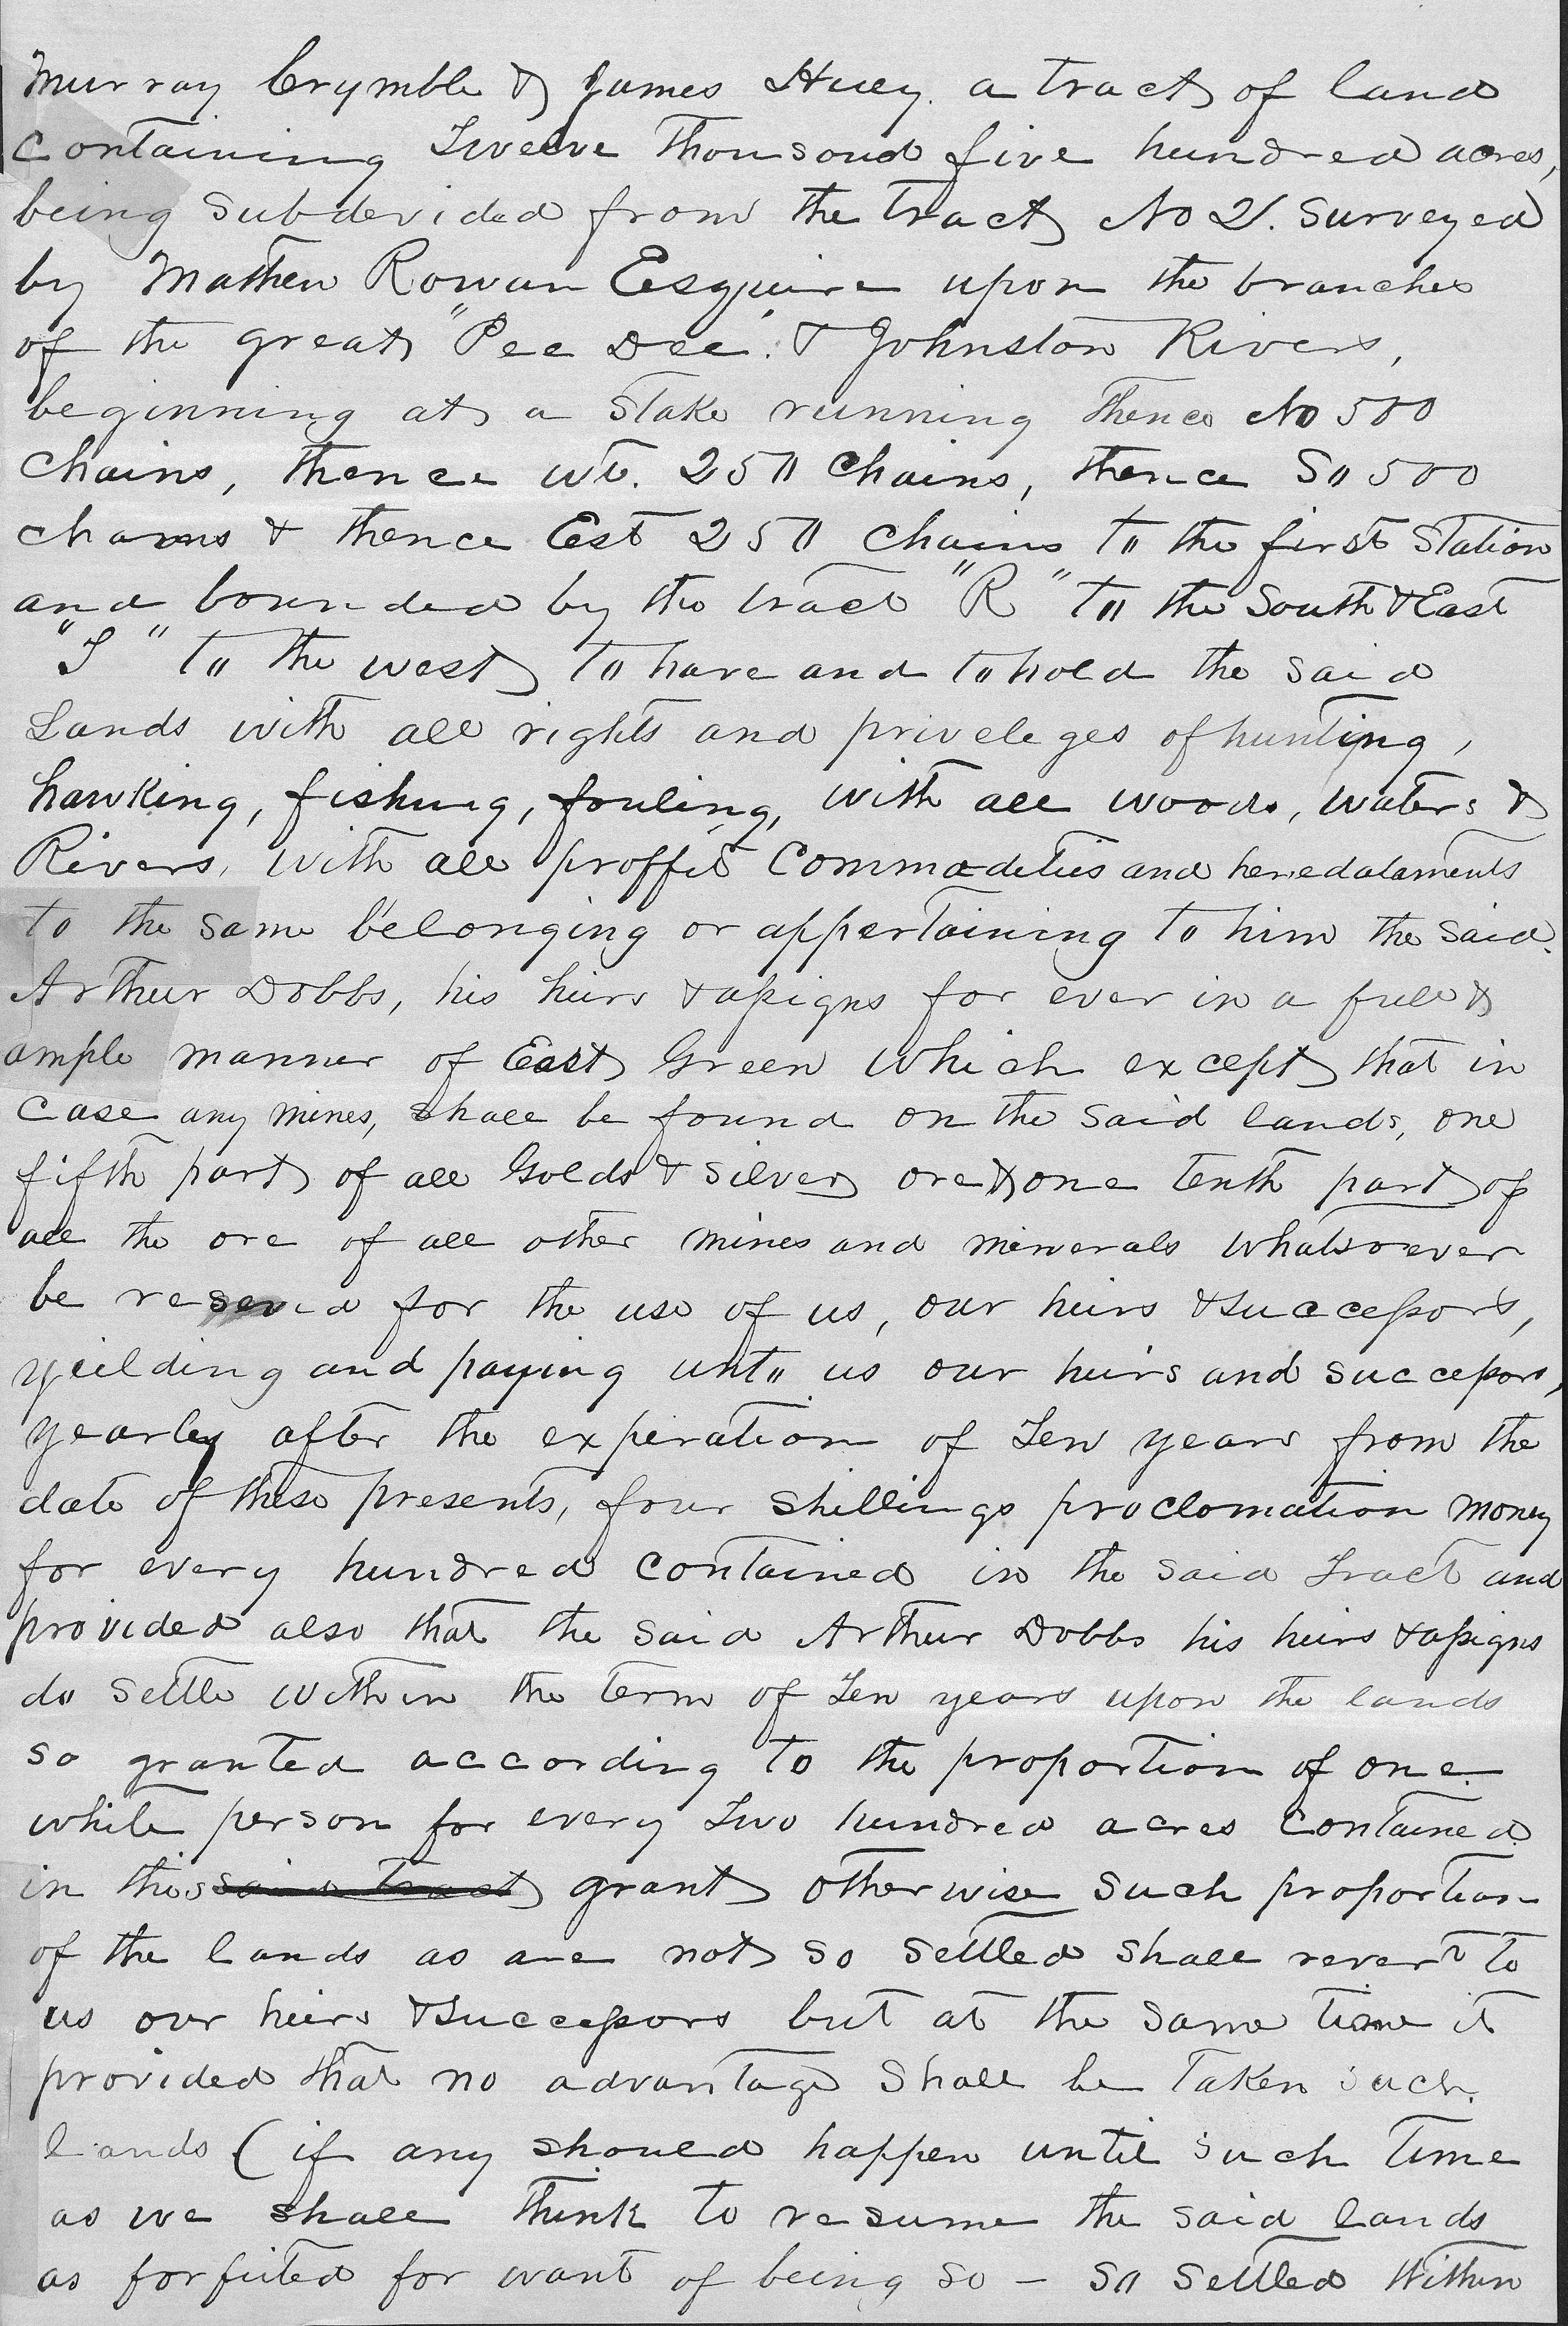 Murray Crymble & James Huey. a tract of land
containing Twelve Thousand five hundred acres,
being Subdevided from the Tract No 2. Surveyed
by Mathew Rowan Esquire upon the branches
of the great "Pee Dee". & Johnston Rivers,
beginning at a Stake running Thence No 500
Chains, thence wt. 250 Chains, thence So 500
chains & thence Est 250 Chains to the first Station
and bounded by the tract "R" to the South & East
"S" to the west to have and to hold the Said
Lands with all rights and priveleges of hunting,
hawking, fishing, fouling, with all woods, waters &
Rivers, with all proffits Commodeties and heredataments
to the same belonging or appertaining to him the Said.
Arthur Dobbs, his heirs & assigns for ever in a full &
ample manner of East Green which except that in
Case any mines, shall be found on the said lands, one
fifth part of all Golds & silver ore & one tenth part of
all the ore of all other mines and minerals whatsoever
be reserved for the use of us, our heirs & successors,
yeilding and paying unto us our heirs and successors,
yearley after the experation of Ten years from the
date of these presents, four shillings proclomation money
for every hundred contained in the said Tract and
provided also that the said Arthur Dobbs his heirs & assigns
do settle within the term of Ten years upon the lands
so granted according to the proportion of one
white person for every Two hundred acres Contained
in this said tract grant otherwise such proportion
of the lands as are not so settled shall revert to
us our heirs & successors but at the same time it
provided that no advantage shall be taken such
lands (if any should happen until such time
as we shall think to resume the said lands
as forfeited for want of being so - so settled within